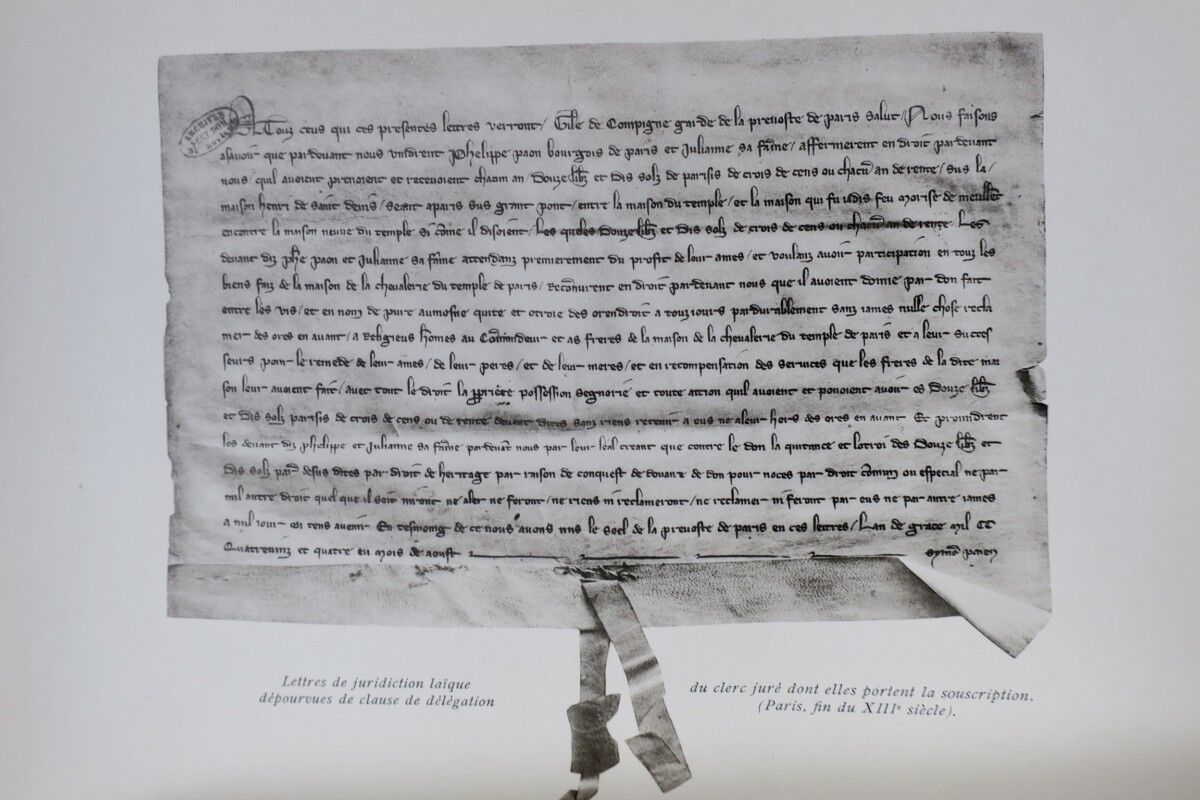 A Touz ceus qui ces presentes lettres verront / Gile de Compigne garde de la prevoste de paris salut / Nous faisons
asavoir que pardevant nous vindrent Phelippe paon bourgois de paris et Julianne sa fame / affermerent en droit pardevant
nous quil avoient prenoient et recevoient chacun an / Douze lib et dis solz de parisis de crois de cens ou chacun an de rente / sus la
maison henri de saint denis / seant a paris sus grant pont / entre la maison du temple / et la maison qui fu iadis feu morise de
encontre la maison neuve du temple si come il disoient / les queles Douze lib et dis solz de crois de cens ou chacun an de rente Les
devant diz phe paon et Julianne sa fame attendanz premierement du profit de leur ames / et voulanz avoir participation en touz les
biens faiz de la maison de la chevalerie du temple de paris / reconurent en droit pardevant nous que il avoient donne par don fait
entre les vis / et en nom de pure aumosne quite et otroie des orendroit a touziours pardurablement sanz iames nulle chose recla
mer des ores en avant / a religieus homes au Comandeur et as freres de la maison de la chevalerie du temple de paris et a leur succes
seurs pour le remede de leur ames / de leur peres / et de leur meres / et en recompensation des services que les freres de la dite mai
son leur avoient fait / avec tout le droit la proprieté possession segnorie et toute action quil avoient et pooient avoir es Douze lib
et dis solz parisis de crois de cens ou de rente devant dites sanz riens retenir a eus ne aleur hoirs des ores en avant Et promidrent
les devant diz phelippe et Julianne sa fame pardevant nous par leur leal creant que contre le don la quitance et lotroi des Douze lib et
dis solz par desus dites par droit de heritage par raison de conquest de douaire de don pour noces par droit comun ou especial ne par
nul autre droit quel que il soit niront ne aler ne feront / ne riens ni reclameront / ne reclamer ni feront par eus ne par autre iames
a nul iour en tens avenir En tesmong de ce nous avons mis le seel de la prevoste de paris en ces lettres / Lan de grace mil CC
Quatrevinz et quatre eu mois de aoust
symon paien
Lettres de juridiction laïque
dépourvues de clause de délégation
du clerc juré dont elles portent la souscription.
(Paris, fin du XIIIe siècle).